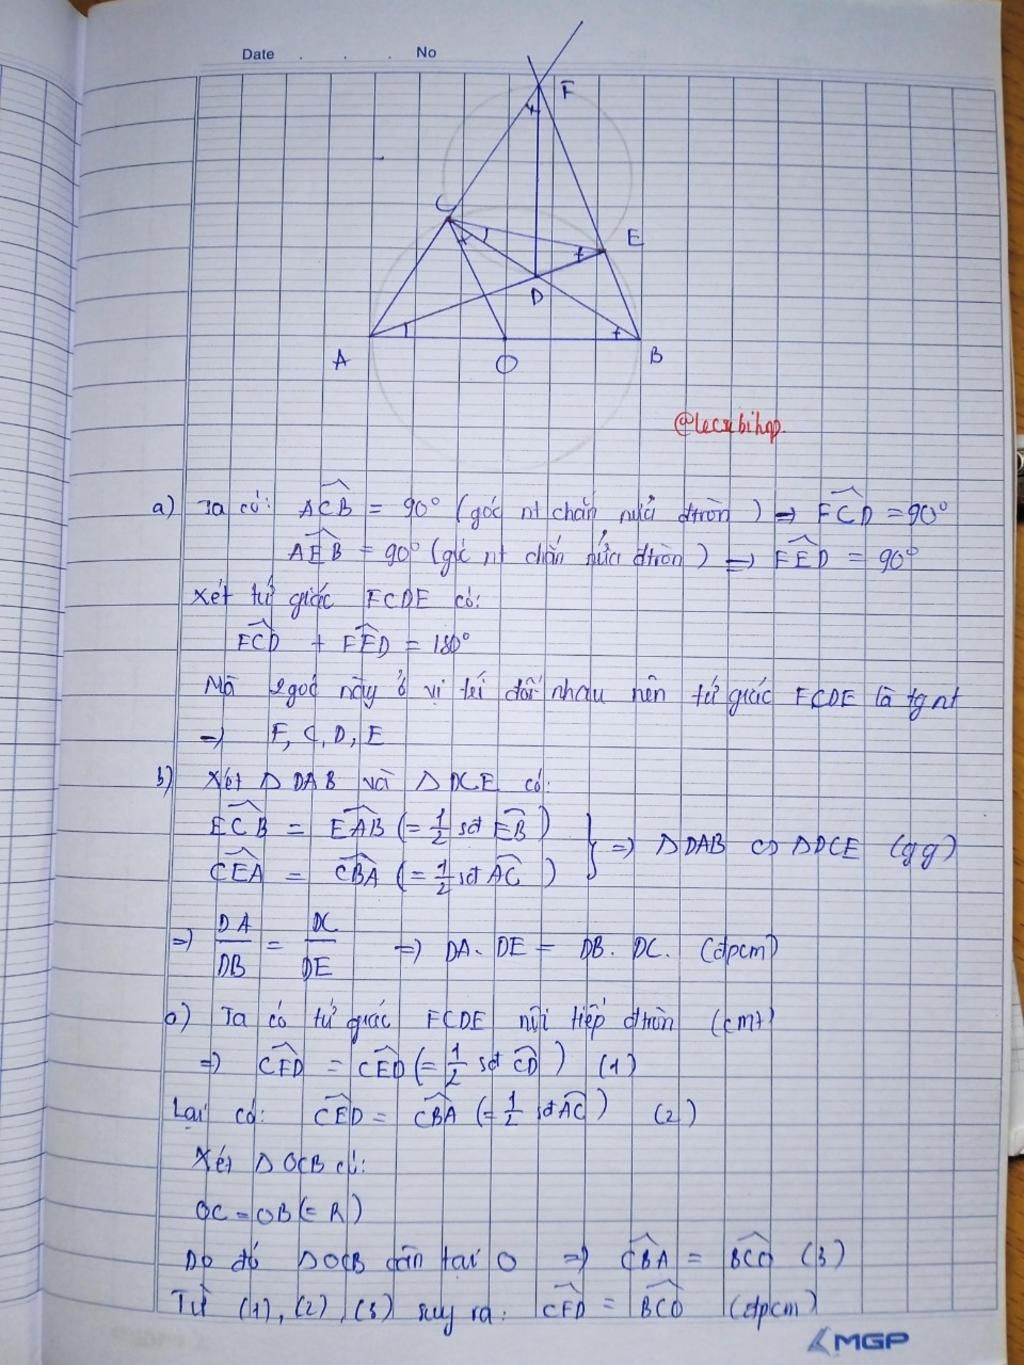 Date . . . No
F
C
E
D
A
O
B
@lecxbihgp.
a) Ta có: ACB = 90° (góc nt chắn nửa đtròn) => FCD = 90°
AEB = 90° (góc nt chắn nửa đtròn) => FED = 90°
Xét tứ giác FCDE có:
FCD + FED = 180°
Mà 2 góc này ở vị trí đối nhau nên tứ giác FCDE là tgnt
=> F, C, D, E
b) Xét Δ DAB và Δ DCE có:
ECB = EAB (= 1/2 sđ EB)
CEA = CBA (= 1/2 sđ AC) } => Δ DAB ∽ Δ DCE (gg)
=> DA/DB = DC/DE => DA. DE = DB. DC. (đpcm)
c) Ta có tứ giác FCDE nội tiếp đtròn (cmt)
=> CFD = CED (= 1/2 sđ CD) (1)
Lại có: CED = CBA (= 1/2 sđ AC) (2)
Xét Δ OCB có:
OC = OB (= R)
Do đó Δ OCB cân tại O => CBA = BCO (3)
Từ (1), (2), (3) suy ra: CFD = BCO (đpcm)
MGP